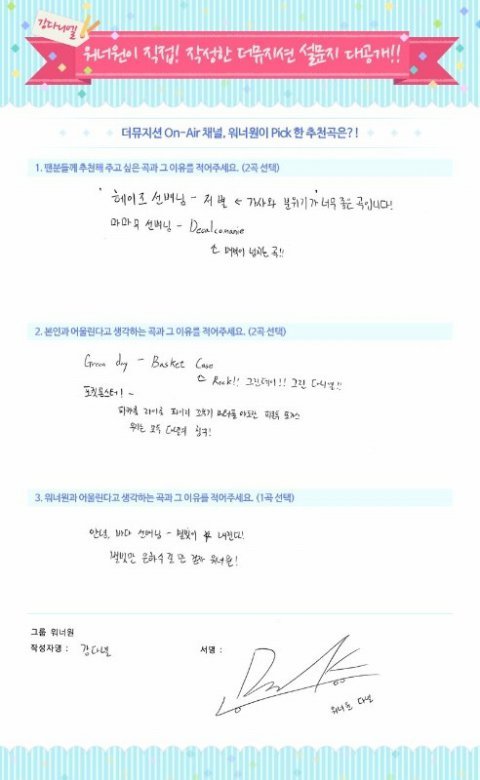 강다니엘
워너원이 직접! 작성한 더뮤지션 설문지 대공개!!
더뮤지션 On-Air 채널, 워너원이 Pick 한 추천곡은?!
1. 팬분들께 추천해 주고 싶은 곡과 그 이유를 적어주세요. (2곡 선택)
헤이즈 선배님 - 저 별 ← 가사와 분위기가 너무 좋은 곡입니다!
마마무 선배님 - Decalcomanie
매력이 넘치는 곡!!
2. 본인과 어울린다고 생각하는 곡과 그 이유를 적어주세요. (2곡 선택)
Green day - Basket Case
Rock!! 그린데이!! 그린 다니엘!!
포켓몬스터 ! ~
피카츄 라이츄 파이리 꼬부기 버터플 야도란 피죤투 또가스
우리는 모두 친구!
3. 워너원과 어울린다고 생각하는 곡과 그 이유를 적어주세요. (1곡 선택)
안녕, 바다 선배님 - 별빛이 내린다!
별빛만 은하수로 만 워너원!
그룹 워너원
작성자명 : 강다니엘
서명 :
워너원 다니엘